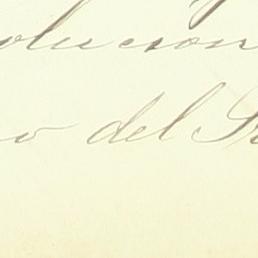 olucion
o del S